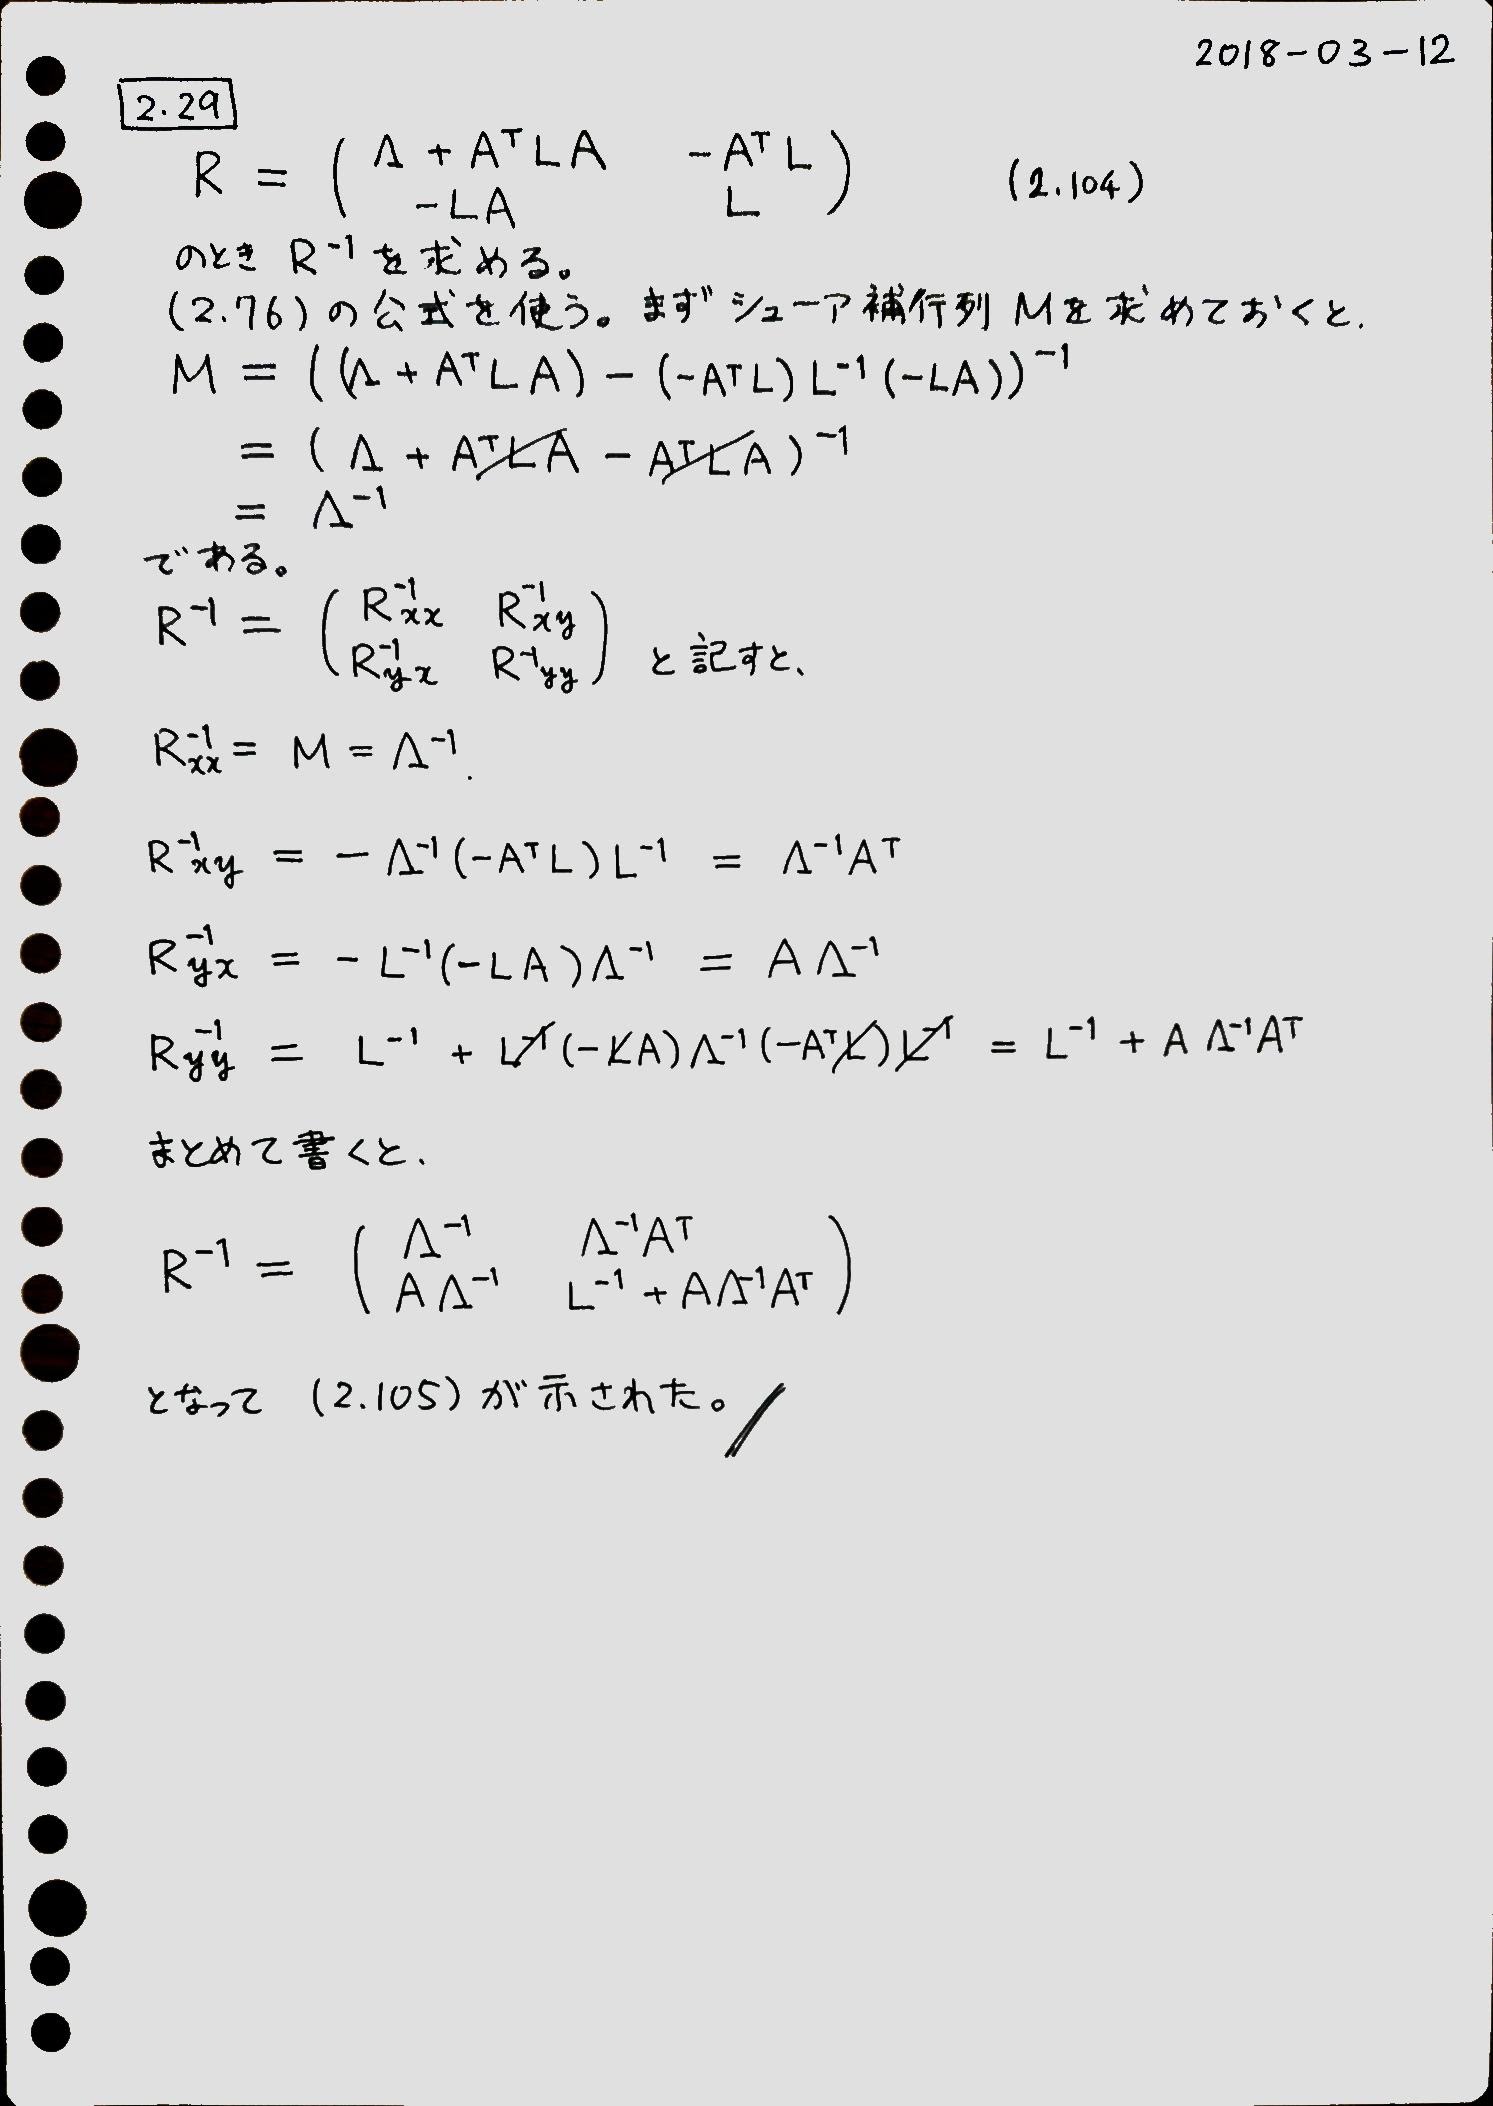 2018-03-12
2.29
R = ( Λ + AᵀLA   -AᵀL
-LA   L ) (2.104)
のとき R⁻¹ を求める。
(2.76)の公式を使う。まず シューア補行列 M を求めておくと、
M = ((Λ + AᵀLA) - (-AᵀL) L⁻¹ (-LA))⁻¹
= (Λ + AᵀLA - AᵀLA)⁻¹
= Λ⁻¹
である。
R⁻¹ = ( R⁻¹xx   R⁻¹xy
R⁻¹yx   R⁻¹yy ) と記すと、
R⁻¹xx = M = Λ⁻¹.
R⁻¹xy = - Λ⁻¹(-AᵀL) L⁻¹ = Λ⁻¹Aᵀ
R⁻¹yx = - L⁻¹(-LA)Λ⁻¹ = AΛ⁻¹
R⁻¹yy = L⁻¹ + L⁻¹(-LA)Λ⁻¹(-AᵀL)L⁻¹ = L⁻¹ + AΛ⁻¹Aᵀ
まとめて書くと、
R⁻¹ = ( Λ⁻¹   Λ⁻¹Aᵀ
AΛ⁻¹   L⁻¹ + AΛ⁻¹Aᵀ )
となって (2.105) が示された。